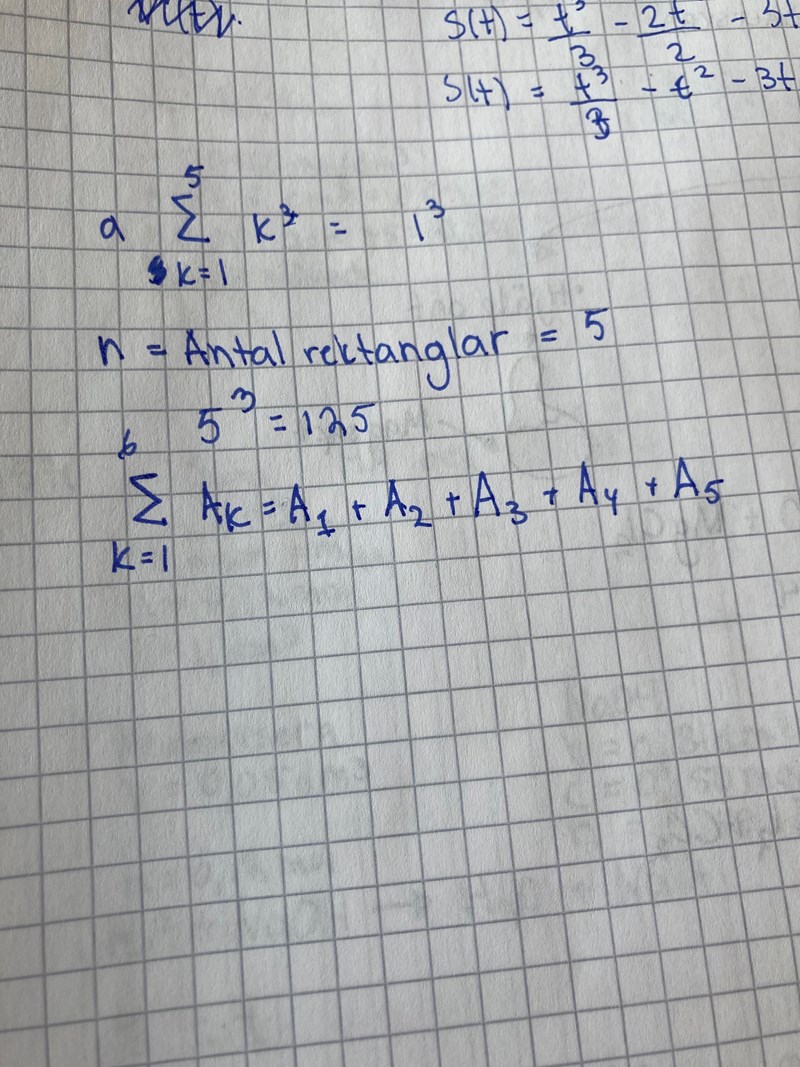 S(t) = t³/3 - 2t/2 - 3t
S(t) = t³/3 - t² - 3t
5
a Σ k³ = 1³
k=1
n = Antal rektanglar = 5
5³ = 125
6
Σ A_K = A_1 + A_2 + A_3 + A_4 + A_5
K=1